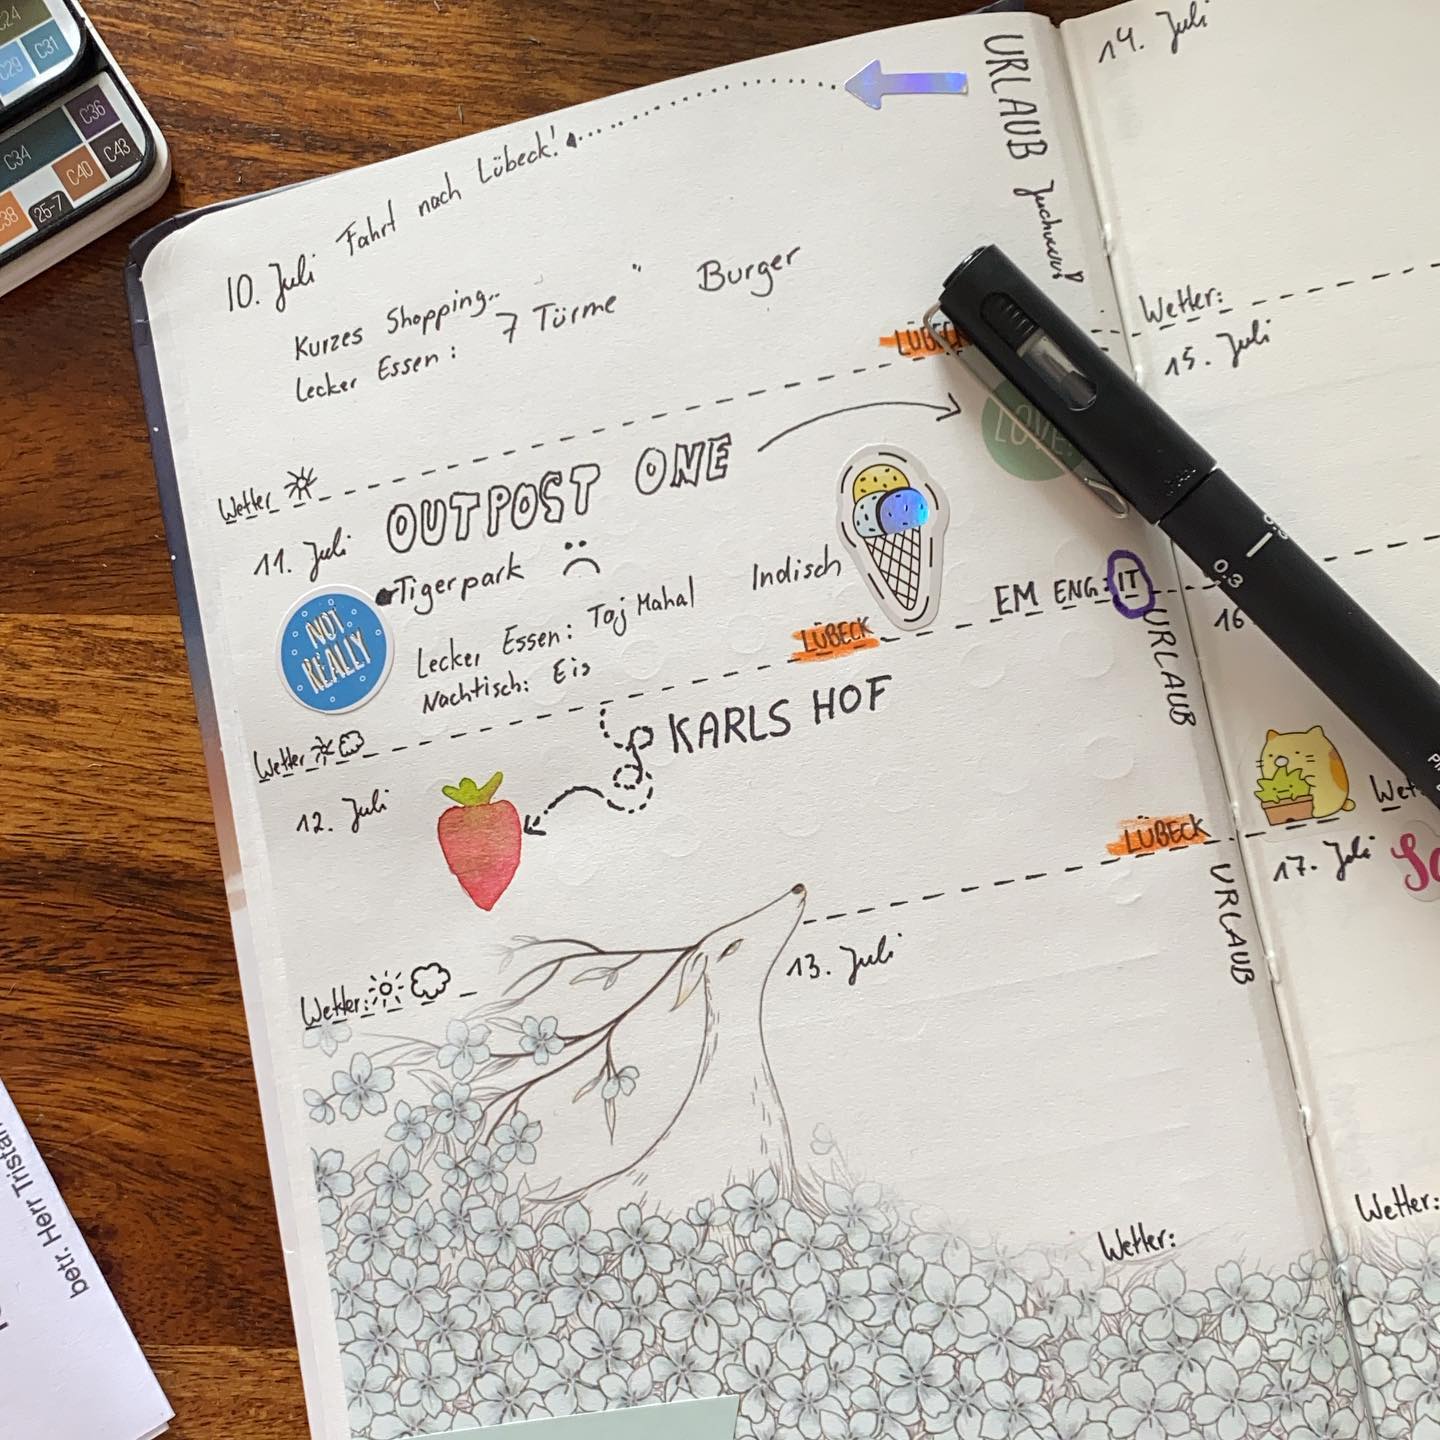 C24
C31
C29
C36
C34
C43
C40
C38
25-7
URLAUB
10. Juli Fahrt nach Lübeck!
Kurzes Shopping..
Lecker Essen: 7 Türme " Burger
LÜBECK
Wetter
11. Juli OUTPOST ONE
LOVE
NOT REALLY
Tigerpark
Lecker Essen: Taj Mahal Indisch
Nachtisch: Eis
LÜBECK
EM ENG:IT
URLAUB
Wetter
12. Juli
KARLS HOF
LÜBECK
URLAUB
Wetter:
13. Juli
Wetter:
14. Juli
Wetter:
15. Juli
0.3
16
17. Juli
Wetter:
betr. Herr Tristan